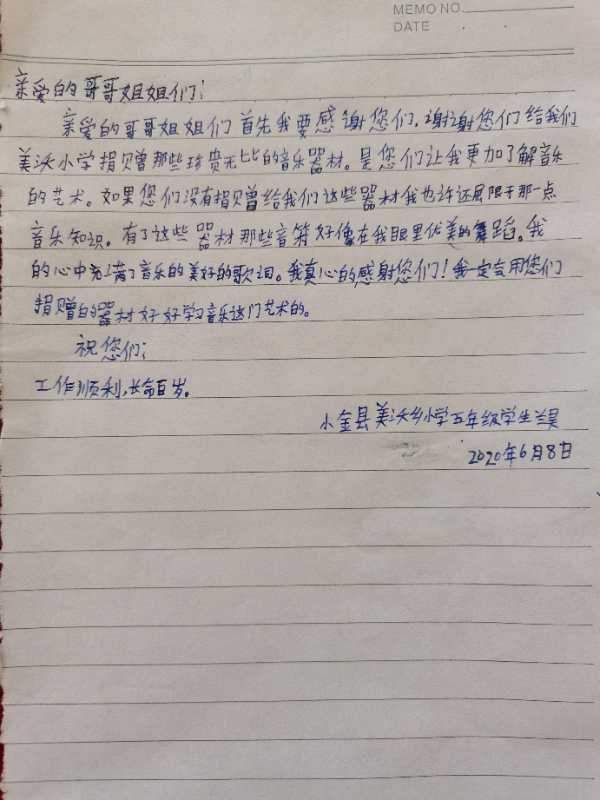 MEMO NO.
DATE
亲爱的哥哥姐姐们:
亲爱的哥哥姐姐们首先我要感谢您们,谢谢您们给我们
美沃小学捐赠那些珍贵无比的音乐器材。是您们让我更加了解音乐
的艺术。如果您们没有捐赠给我们这些器材我也许还局限于那一点
音乐知识。有了这些器材那些音符好像在我眼里优美的舞蹈。我
的心中充满了音乐的美好的歌词。我真心的感谢您们!我一定会用您们
捐赠的器材好好学习音乐这门艺术的。
祝您们:
工作顺利,长命百岁。
小金县美沃乡小学五年级学生兰昊
2020年6月8日